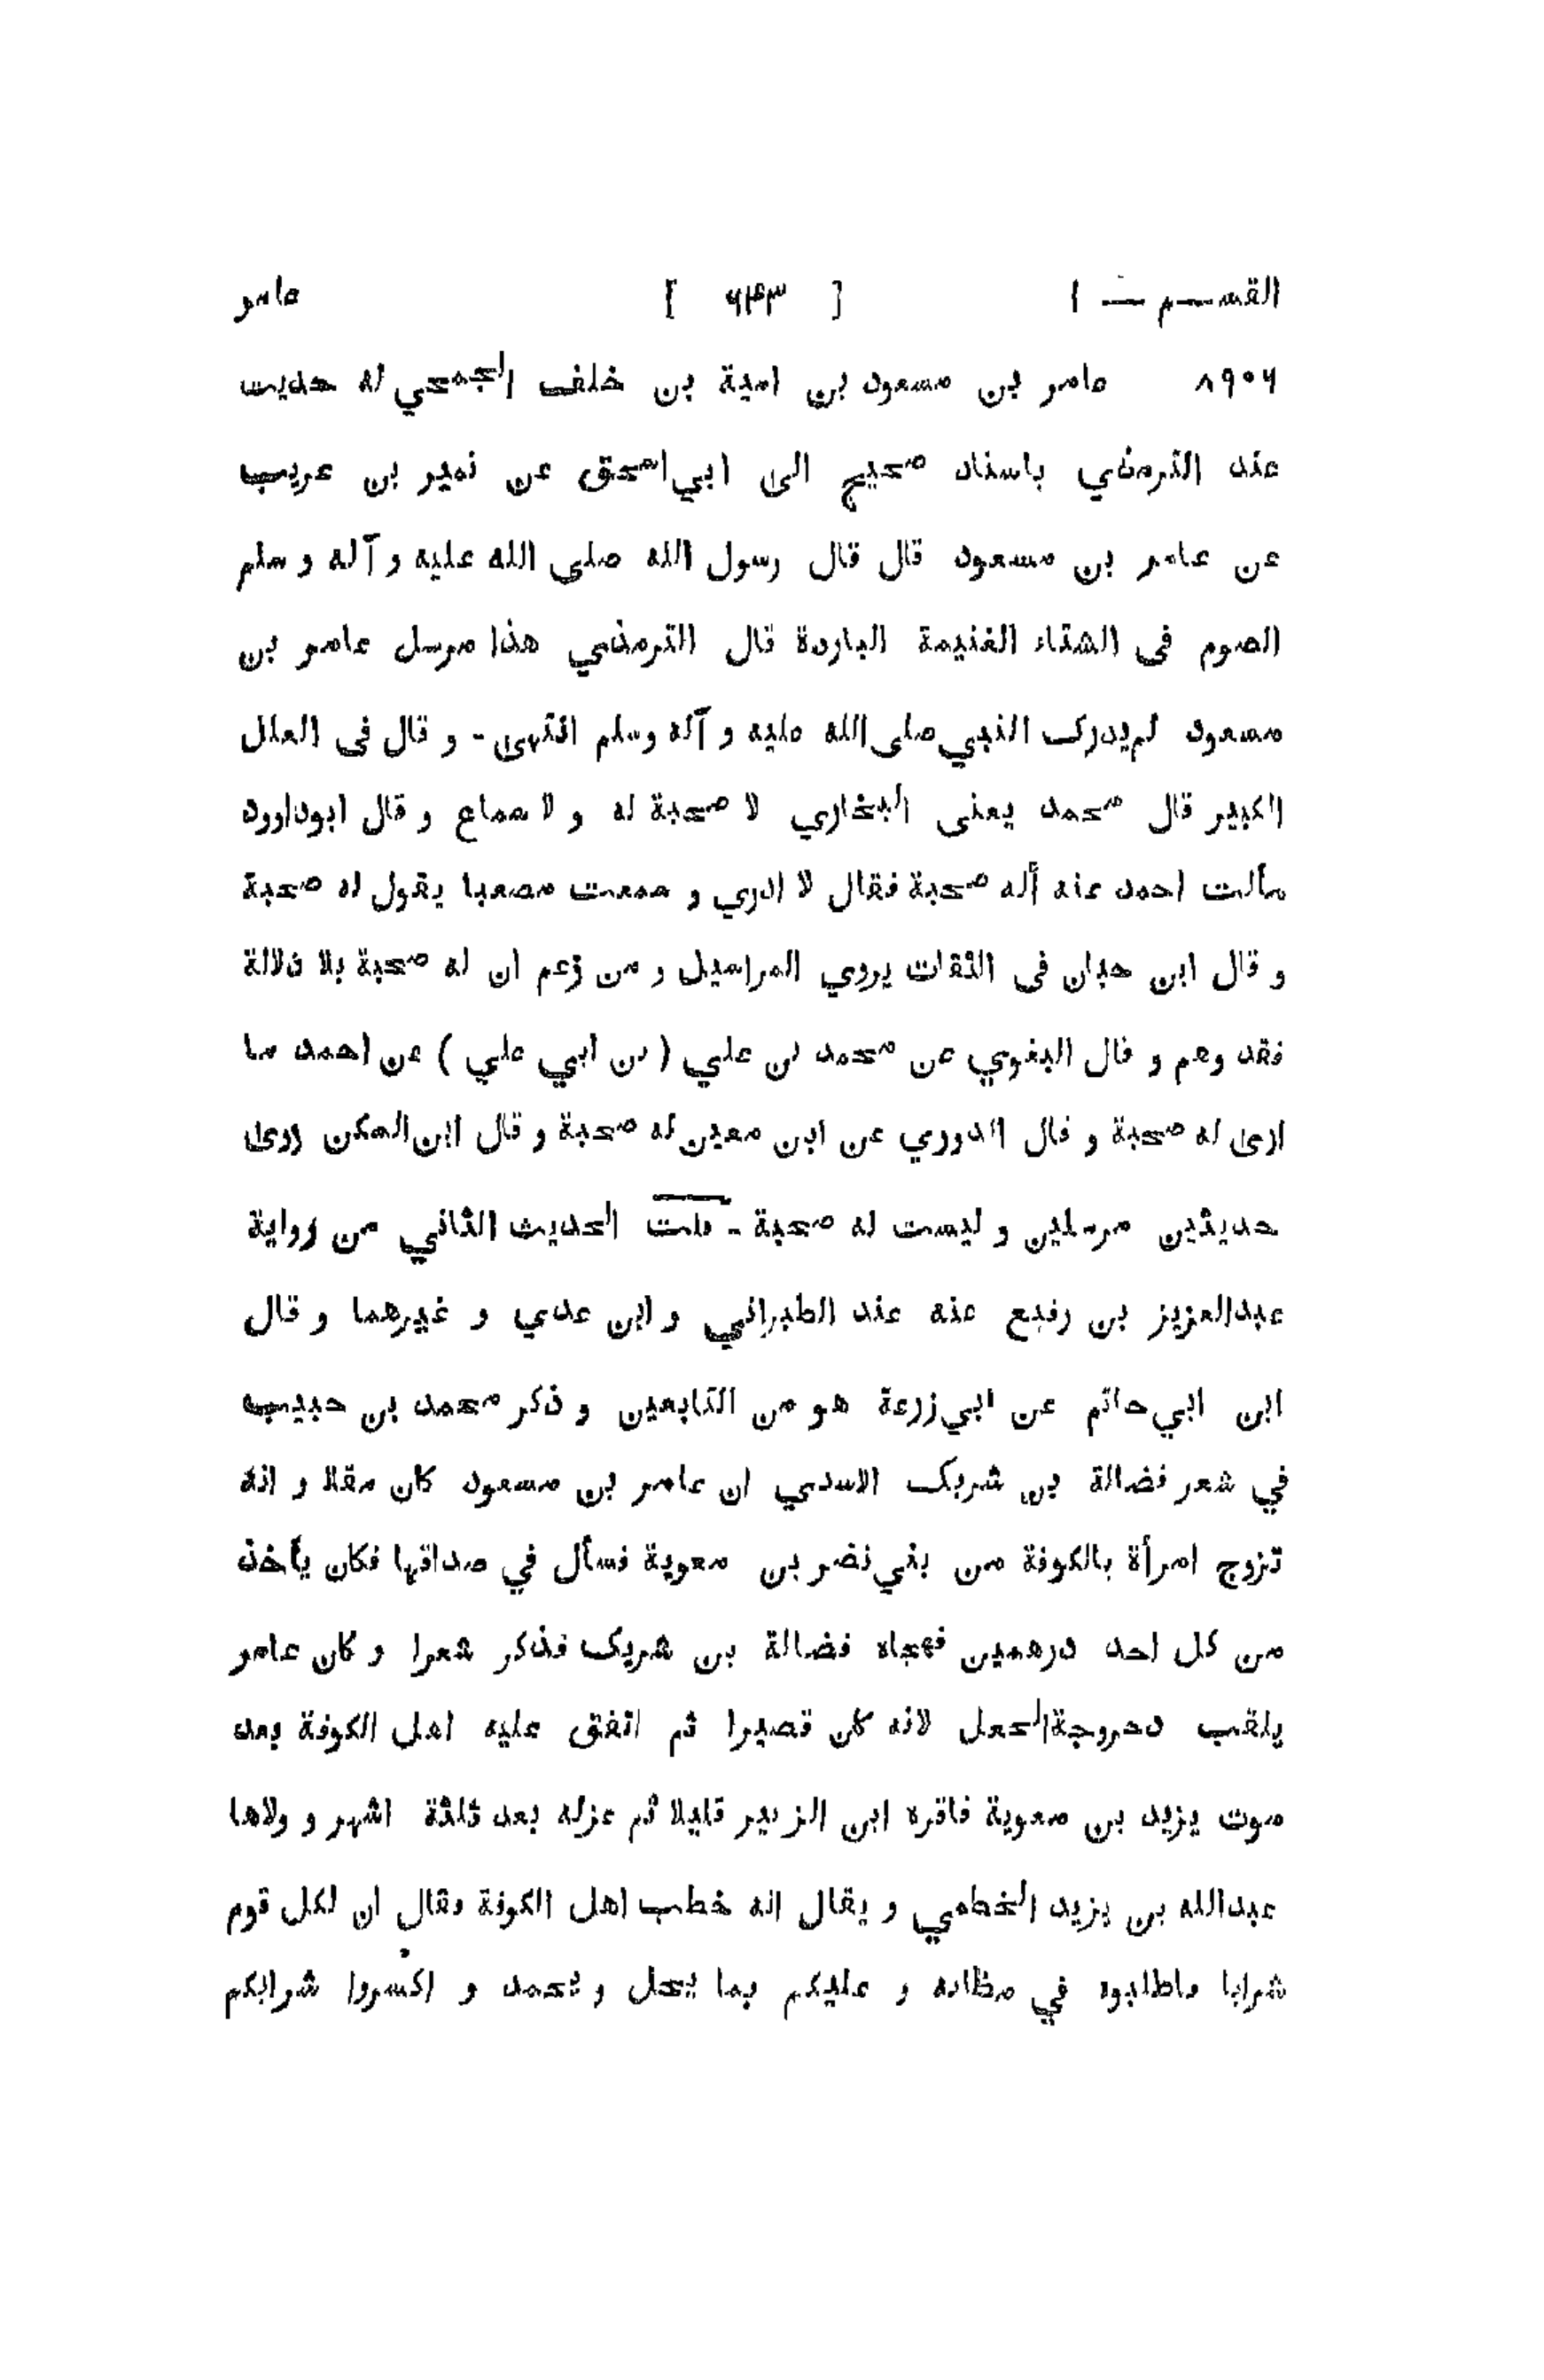 القسم — ١ [ ٦٤٣ ] عامر
٨٩٠٦ عامر بن مسعود بن امية بن خلف الجمحي له حديث
عند الترمذي باسناد صحيح الى ابي اسحق عن نمير بن عريب
عن عامر بن مسعود قال قال رسول الله صلى الله عليه و آله و سلم
الصوم فى الشتاء الغنيمة الباردة قال الترمذي هذا مرسل عامر بن
مسعود لم يدرك النبي صلى الله عليه و آله وسلم انتهى - و قال فى العلل
الكبير قال محمد يعنى البخاري لا صحبة له و لا سماع و قال ابوداوود
سألت احمد عنه أله صحبة فقال لا ادري و سمعت مصعبا يقول له صحبة
و قال ابن حبان فى الثقات يروي المراسيل و من زعم ان له صحبة بلا دلالة
فقد وهم و قال البغوي عن محمد بن علي ( بن ابي علي ) عن احمد ما
ارى له صحبة و قال الدوري عن ابن معين له صحبة و قال ابن السكن روى
حديثين مرسلين و ليست له صحبة - قلت الحديث الثاني من رواية
عبدالعزيز بن رفيع عنه عند الطبراني و ابن عدي و غيرهما و قال
ابن ابي حاتم عن ابي زرعة هو من التابعين و ذكر محمد بن حبيب
في شعر فضالة بن شريك الاسدي ان عامر بن مسعود كان مقلا و انه
تزوج امرأة بالكوفة من بني نضر بن معوية فسأل في صداقها فكان يأخذ
من كل احد درهمين فهجاه فضالة بن شريك فذكر شعرا و كان عامر
يلقب دحروجة الجعل لانه كان قصيرا ثم اتفق عليه اهل الكوفة بعد
موت يزيد بن معوية فاقره ابن الزبير قليلا ثم عزله بعد ثلثة اشهر و ولاها
عبدالله بن يزيد الخطمي و يقال انه خطب اهل الكوفة فقال ان لكل قوم
شرابا فاطلبوه في مظانه و عليكم بما يحل و يحمد و اكسروا شرابكم